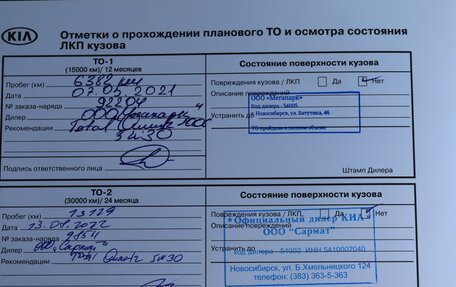 KIA
Отметки о прохождении планового ТО и осмотра состояния
ЛКП кузова
ТО-1
(15000 км)/ 12 месяцев
Состояние поверхности кузова
Пробег (км) 6382 км
Повреждения кузова / ЛКП Да Нет
Дата 07.05.2021
Описание повреждений
№ заказа-наряда 92204
ООО «Мегапарк»
Код дилера - 54005
Дилер ООО
Устранить до Новосибирск, ул. Ватутина, 46
Рекомендации Total 5000
ТО пройдено в полном объеме
5W30
Подпись ответственного лица
Штамп Дилера
ТО-2
(30000 км)/ 24 месяца
Состояние поверхности кузова
Пробег (км) 13129
Повреждения кузова / ЛКП Да Нет
Дата 13.01.2022
Описание повреждений
"Официальный дилер КИА"
№ заказа-наряда 9854
ООО "Сармат"
Дилер "Сармат"
Устранить до
код дилера - 54002 ИНН 5410002040
Рекомендации 5W30
Новосибирск, ул. Б.Хмельницкого 124
телефон: (383) 363-5-363